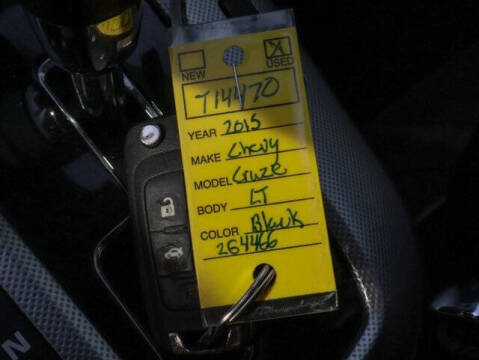 NEW USED
T14470
YEAR 2015
MAKE Chevy
MODEL Cruze
BODY LT
COLOR Black
264466
N